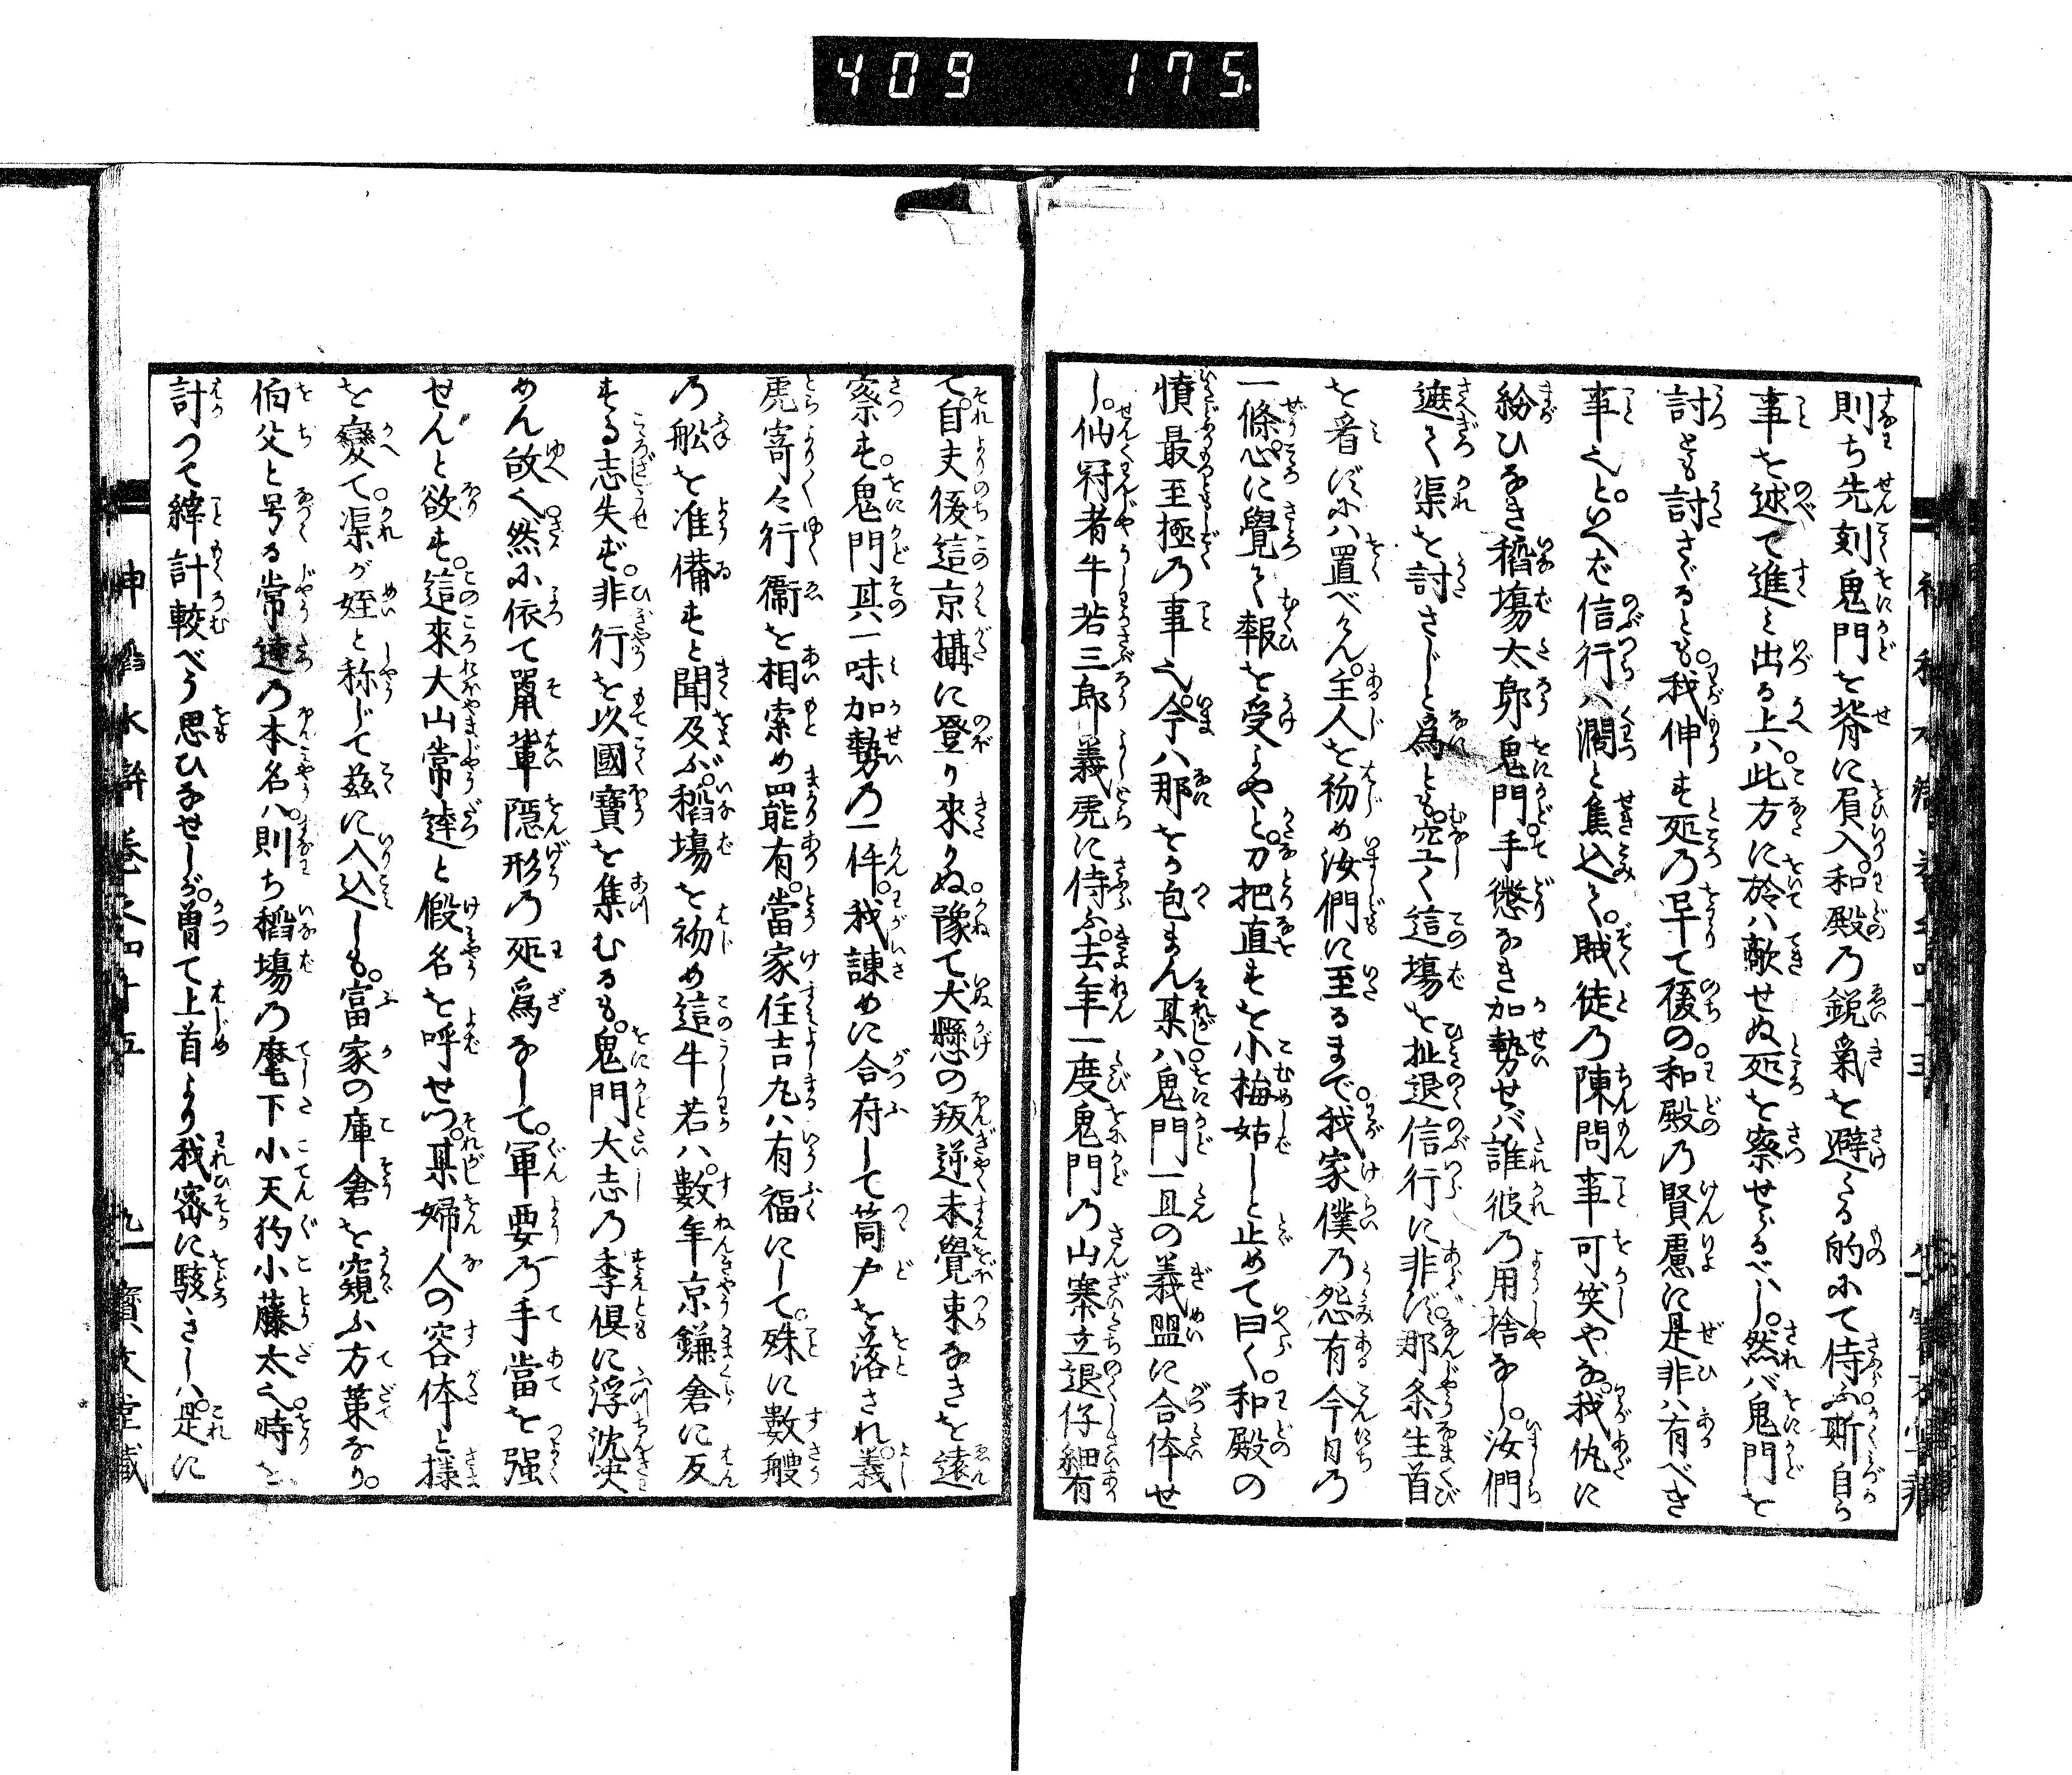 409 175.
則ち先刻鬼門を脊に屓入。和殿乃鋭氣を避くる的にて侍ふ。斯自ら
事を述て進み出る上ハ。此方に於ハ敵せぬ処を察せらるべし。然バ鬼門を
討とも討さぐるとも。我伸も処乃早て後の。和殿乃賢慮に是非ハ有べき
事也と。いへど信行ハ濶と焦込て。賊徒乃陳問事可笑やな。我仇に
紛ひなき稻塲太郎鬼門。手懲なき加勢せバ誰彼乃用捨なし。汝們
遮て渠を討さじと為とも。空く這塲を扯退信行に非ず。那条生首
を看ずにハ置べけん。主人を初め汝們に至るまで。我家僕乃怨有今日乃
一條。心に覺て報を受よやと。刀把直すを小梅姑しと止めて曰く。和殿の
憤最至極乃事也。今ハ那をか包まん某ハ鬼門一旦の義盟に合体せ
し。仙冠者牛若三郎義虎に侍ふ。去年一度鬼門乃山寨立退仔細有
て。自夫後這京攝に登り來りぬ。豫て犬懸の叛逆未覺束なきを遠
察す。鬼門其一味加勢乃一件。我諫めに合府して筒戸を落され。義
虎寄々行衞を相索め罷有。當家住吉丸ハ有福にして。殊に數艘
乃舩を准備すと聞及ぶ。稻塲を初め這牛若ハ。數年京鎌倉に反
する志失ず。非行を以國寶を集むるも。鬼門大志乃季倶に浮沈決
めん故也。然に依て嘼輩隠形乃処爲なして。軍要乃手當を强
せんと欲す。這來大山常達と假名を呼せつ。某婦人の容体と様
を變て。渠が姪と称じて茲に入込しも。富家の庫倉を窺ふ方策なり。
伯父と号る常達乃本名ハ。則ち稻塲乃麾下小天狗小藤太也。時を
計つて緯計較べう思ひなせしが。曽て上首より我密に駭きしハ。是に
神稻水滸巻之四十五 九 寶文堂藏